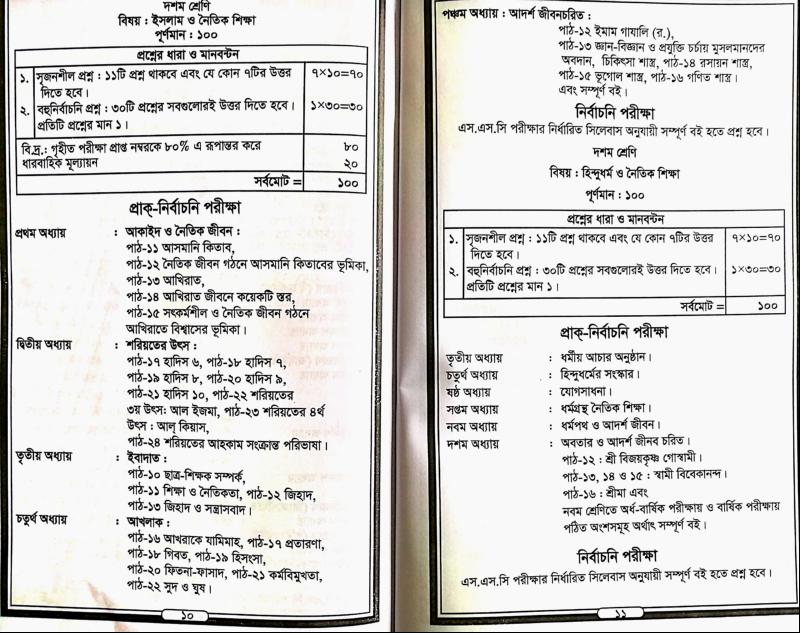 দশম শ্রেণি
বিষয় : ইসলাম ও নৈতিক শিক্ষা
পূর্ণমান : ১০০
প্রশ্নের ধারা ও মানবন্টন
১. সৃজনশীল প্রশ্ন : ১১টি প্রশ্ন থাকবে এবং যে কোন ৭টির উত্তর দিতে হবে। ৭×১০=৭০
২. বহুনির্বাচনি প্রশ্ন : ৩০টি প্রশ্নের সবগুলোরই উত্তর দিতে হবে। ১×৩০=৩০
প্রতিটি প্রশ্নের মান ১।
বি.দ্র.: গৃহীত পরীক্ষা প্রাপ্ত নম্বরকে ৮০% এ রূপান্তর করে ৮০
ধারবাহিক মূল্যায়ন ২০
সর্বমোট = ১০০
প্রাক্-নির্বাচনি পরীক্ষা
প্রথম অধ্যায় : আকাইদ ও নৈতিক জীবন :
পাঠ-১১ আসমানি কিতাব,
পাঠ-১২ নৈতিক জীবন গঠনে আসমানি কিতাবের ভূমিকা,
পাঠ-১৩ আখিরাত,
পাঠ-১৪ আখিরাত জীবনে কয়েকটি স্তর,
পাঠ-১৫ সৎকর্মশীল ও নৈতিক জীবন গঠনে
আখিরাতে বিশ্বাসের ভূমিকা।
দ্বিতীয় অধ্যায় : শরিয়তের উৎস :
পাঠ-১৭ হাদিস ৬, পাঠ-১৮ হাদিস ৭,
পাঠ-১৯ হাদিস ৮, পাঠ-২০ হাদিস ৯,
পাঠ-২১ হাদিস ১০, পাঠ-২২ শরিয়তের
৩য় উৎস: আল ইজমা, পাঠ-২৩ শরিয়তের ৪র্থ
উৎস : আল্ কিয়াস,
পাঠ-২৪ শরিয়তের আহকাম সংক্রান্ত পরিভাষা।
তৃতীয় অধ্যায় : ইবাদাত :
পাঠ-১০ ছাত্র-শিক্ষক সম্পর্ক,
পাঠ-১১ শিক্ষা ও নৈতিকতা, পাঠ-১২ জিহাদ,
পাঠ-১৩ জিহাদ ও সন্ত্রাসবাদ।
চতুর্থ অধ্যায় : আখলাক :
পাঠ-১৬ আখরাকে যামিমাহ, পাঠ-১৭ প্রতারণা,
পাঠ-১৮ গিবত, পাঠ-১৯ হিংসা,
পাঠ-২০ ফিতনা-ফাসাদ, পাঠ-২১ কর্মবিমুখতা,
পাঠ-২২ সুদ ও ঘুষ।
১০
পঞ্চম অধ্যায় : আদর্শ জীবনচরিত :
পাঠ-১২ ইমাম গাযালি (র.),
পাঠ-১৩ জ্ঞান-বিজ্ঞান ও প্রযুক্তি চর্চায় মুসলমানদের
অবদান, চিকিৎসা শাস্ত্র, পাঠ-১৪ রসায়ন শাস্ত্র,
পাঠ-১৫ ভূগোল শাস্ত্র, পাঠ-১৬ গণিত শাস্ত্র।
এবং সম্পূর্ণ বই।
নির্বাচনি পরীক্ষা
এস.এস.সি পরীক্ষার নির্ধারিত সিলেবাস অনুযায়ী সম্পূর্ণ বই হতে প্রশ্ন হবে।
দশম শ্রেণি
বিষয় : হিন্দুধর্ম ও নৈতিক শিক্ষা
পূর্ণমান : ১০০
প্রশ্নের ধারা ও মানবন্টন
১. সৃজনশীল প্রশ্ন : ১১টি প্রশ্ন থাকবে এবং যে কোন ৭টির উত্তর ৭×১০=৭০
দিতে হবে।
২. বহুনির্বাচনি প্রশ্ন : ৩০টি প্রশ্নের সবগুলোরই উত্তর দিতে হবে। ১×৩০=৩০
প্রতিটি প্রশ্নের মান ১।
সর্বমোট = ১০০
প্রাক্-নির্বাচনি পরীক্ষা
তৃতীয় অধ্যায় : ধর্মীয় আচার অনুষ্ঠান।
চতুর্থ অধ্যায় : হিন্দুধর্মের সংস্কার।
ষষ্ঠ অধ্যায় : যোগসাধনা।
সপ্তম অধ্যায় : ধর্মগ্রন্থ নৈতিক শিক্ষা।
নবম অধ্যায় : ধর্মপথ ও আদর্শ জীবন।
দশম অধ্যায় : অবতার ও আদর্শ জীনব চরিত।
পাঠ-১২ : শ্রী বিজয়কৃষ্ণ গোস্বামী।
পাঠ-১৩, ১৪ ও ১৫ : স্বামী বিবেকানন্দ।
পাঠ-১৬ : শ্রীমা এবং
নবম শ্রেণিতে অর্ধ-বার্ষিক পরীক্ষায় ও বার্ষিক পরীক্ষায়
পঠিত অংশসমূহ অর্থাৎ সম্পূর্ণ বই।
নির্বাচনি পরীক্ষা
এস.এস.সি পরীক্ষার নির্ধারিত সিলেবাস অনুযায়ী সম্পূর্ণ বই হতে প্রশ্ন হবে।
১১